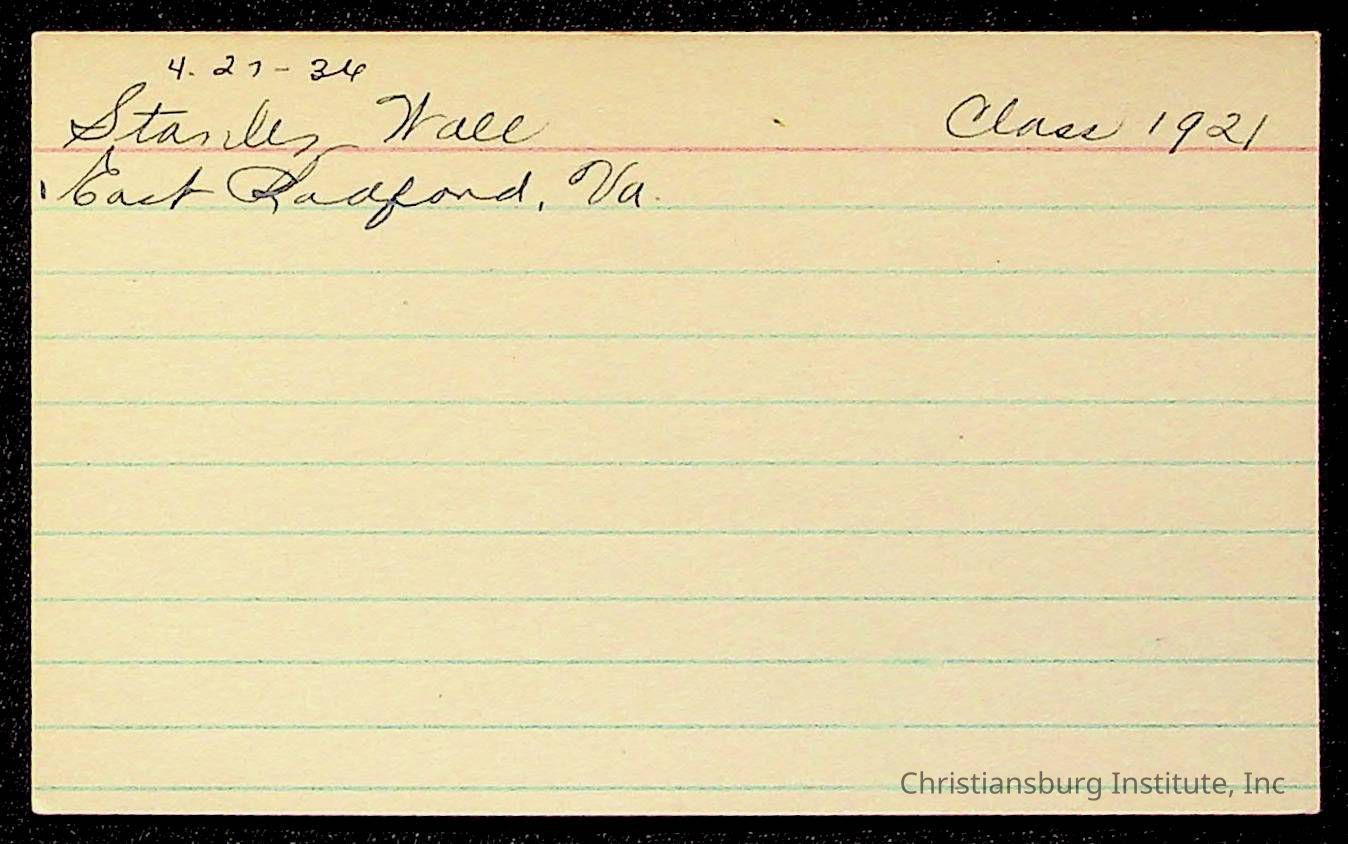 4. 27-36
Stanley Wall Class 1921
East Radford, Va.
Christiansburg Institute, Inc